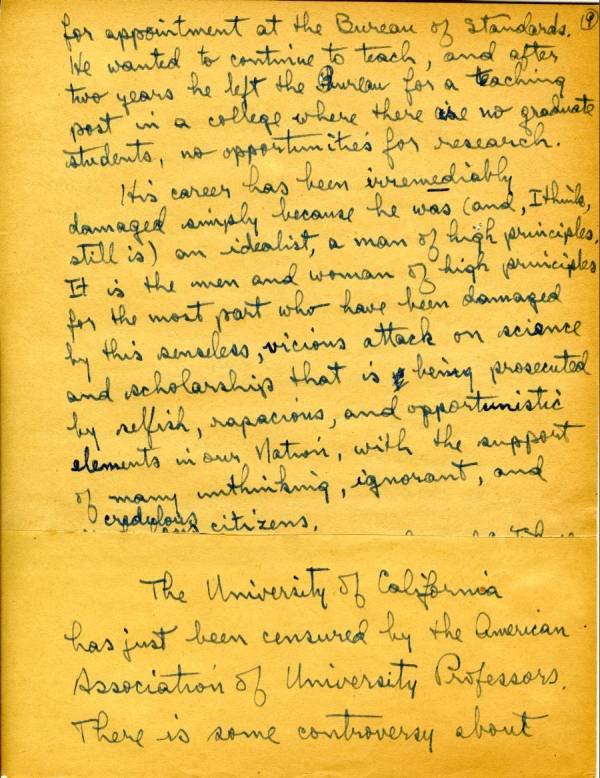 for appointment at the Bureau of Standards. 9
He wanted to continue to teach, and after
two years he left the Bureau for a teaching
post in a college where there are no graduate
students, no opportunities for research.
His career has been irremediably
damaged simply because he was (and, I think,
still is) an idealist, a man of high principles.
It is the men and woman of high principles
for the most part who have been damaged
by this senseless, vicious attack on science
and scholarship that is being prosecuted
by selfish, rapacious, and opportunistic
elements in our Nation, with the support
of many unthinking, ignorant, and
credulous citizens.
The University of California
has just been censured by the American
Association of University Professors.
There is some controversy about